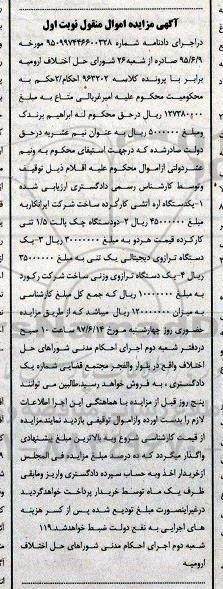 آگهی مزایده اموال منقول نوبت اول
دراجرای دادنامه شماره ۹۵۰۹۹۷۴۴۶۶۰۰۳۲۸ مورخه
۹۵/۶/۹ صادره از شعبه ۲۶ شورای حل اختلاف ارومیه
برابر با پرونده کلاسه ۹۶۳۲۰۲ احکام/۲حکم به
محکومیت محکوم علیه امیرغریالی متاع به مبلغ
۱۲۷۳۸۰۰۰۰ ریال درحق محکوم له ابراهیم برندک
ومبلغ ۵۰۰۰۰۰۰ ریال به عنوان نیم عشربه درحق
دولت صادرشده که درجهت استیفای محکوم به ونیم
عشردولتی ازاموال محکوم علیه اقلام ذیل توقیف
وتوسط کارشناس رسمی دادگستری ارزیابی شده
۱-یکدستگاه اره آتشی کارکرده ساخت شرکت ایرانکاربه
مبلغ ۴۵۰۰۰۰۰۰ ریال ۲-دودستگاه جک پالت ۱/۵ تنی
کارکرده قیمت هردو به مبلغ ۳۰۰۰۰۰۰۰ ریال ۳-یک
دستگاه ترازوی دیجیتالی یک تنی به مبلغ ۳۵۰۰۰۰۰۰
ریال ۴-یک دستگاه ترازوی وزنی ساخت شرکت رکورد
به مبلغ ۱۰۰۰۰۰۰۰ ریال که جمع کل مبلغ کارشناسی
به میزان ۱۲۰۰۰۰۰۰۰ ریال میباشد که از طریق مزایده
حضوری روز چهارشنبه مورخ ۹۷/۶/۱۴ ساعت ۱۰ صبح
دردفتر شعبه دوم اجرای احکام مدنی شوراهای حل
اختلاف واقع در بلوار والفجر مجتمع قضایی شماره یک
دادگستری ، به فروش خواهد رسید.طالبین می توانند
پنج روز قبل از مزایده با هماهنگی این اجرا اطلاعات
لازم را بدست آورده وازاموال توقیفی بازدید نمایندمزایده
از قیمت کارشناسی شروع وبه بالاترین مبلغ پیشنهادی
واگذار میگردد که ده درصد مبلغ مزایده فی المجلس
ازخریدار اخذ وبه حساب سپرده دادگستری واریز ومابقی
ظرف یک ماه توسط خریدار پرداخت خواهدگردید
درغیراینصورت مبلغ تودیع شده پس از کسر هزینه
های اجرایی به نفع دولت ضبط خواهدشد.۱۱۹
شعبه دوم اجرای احکام مدنی شوراهای حل اختلاف
ارومیه